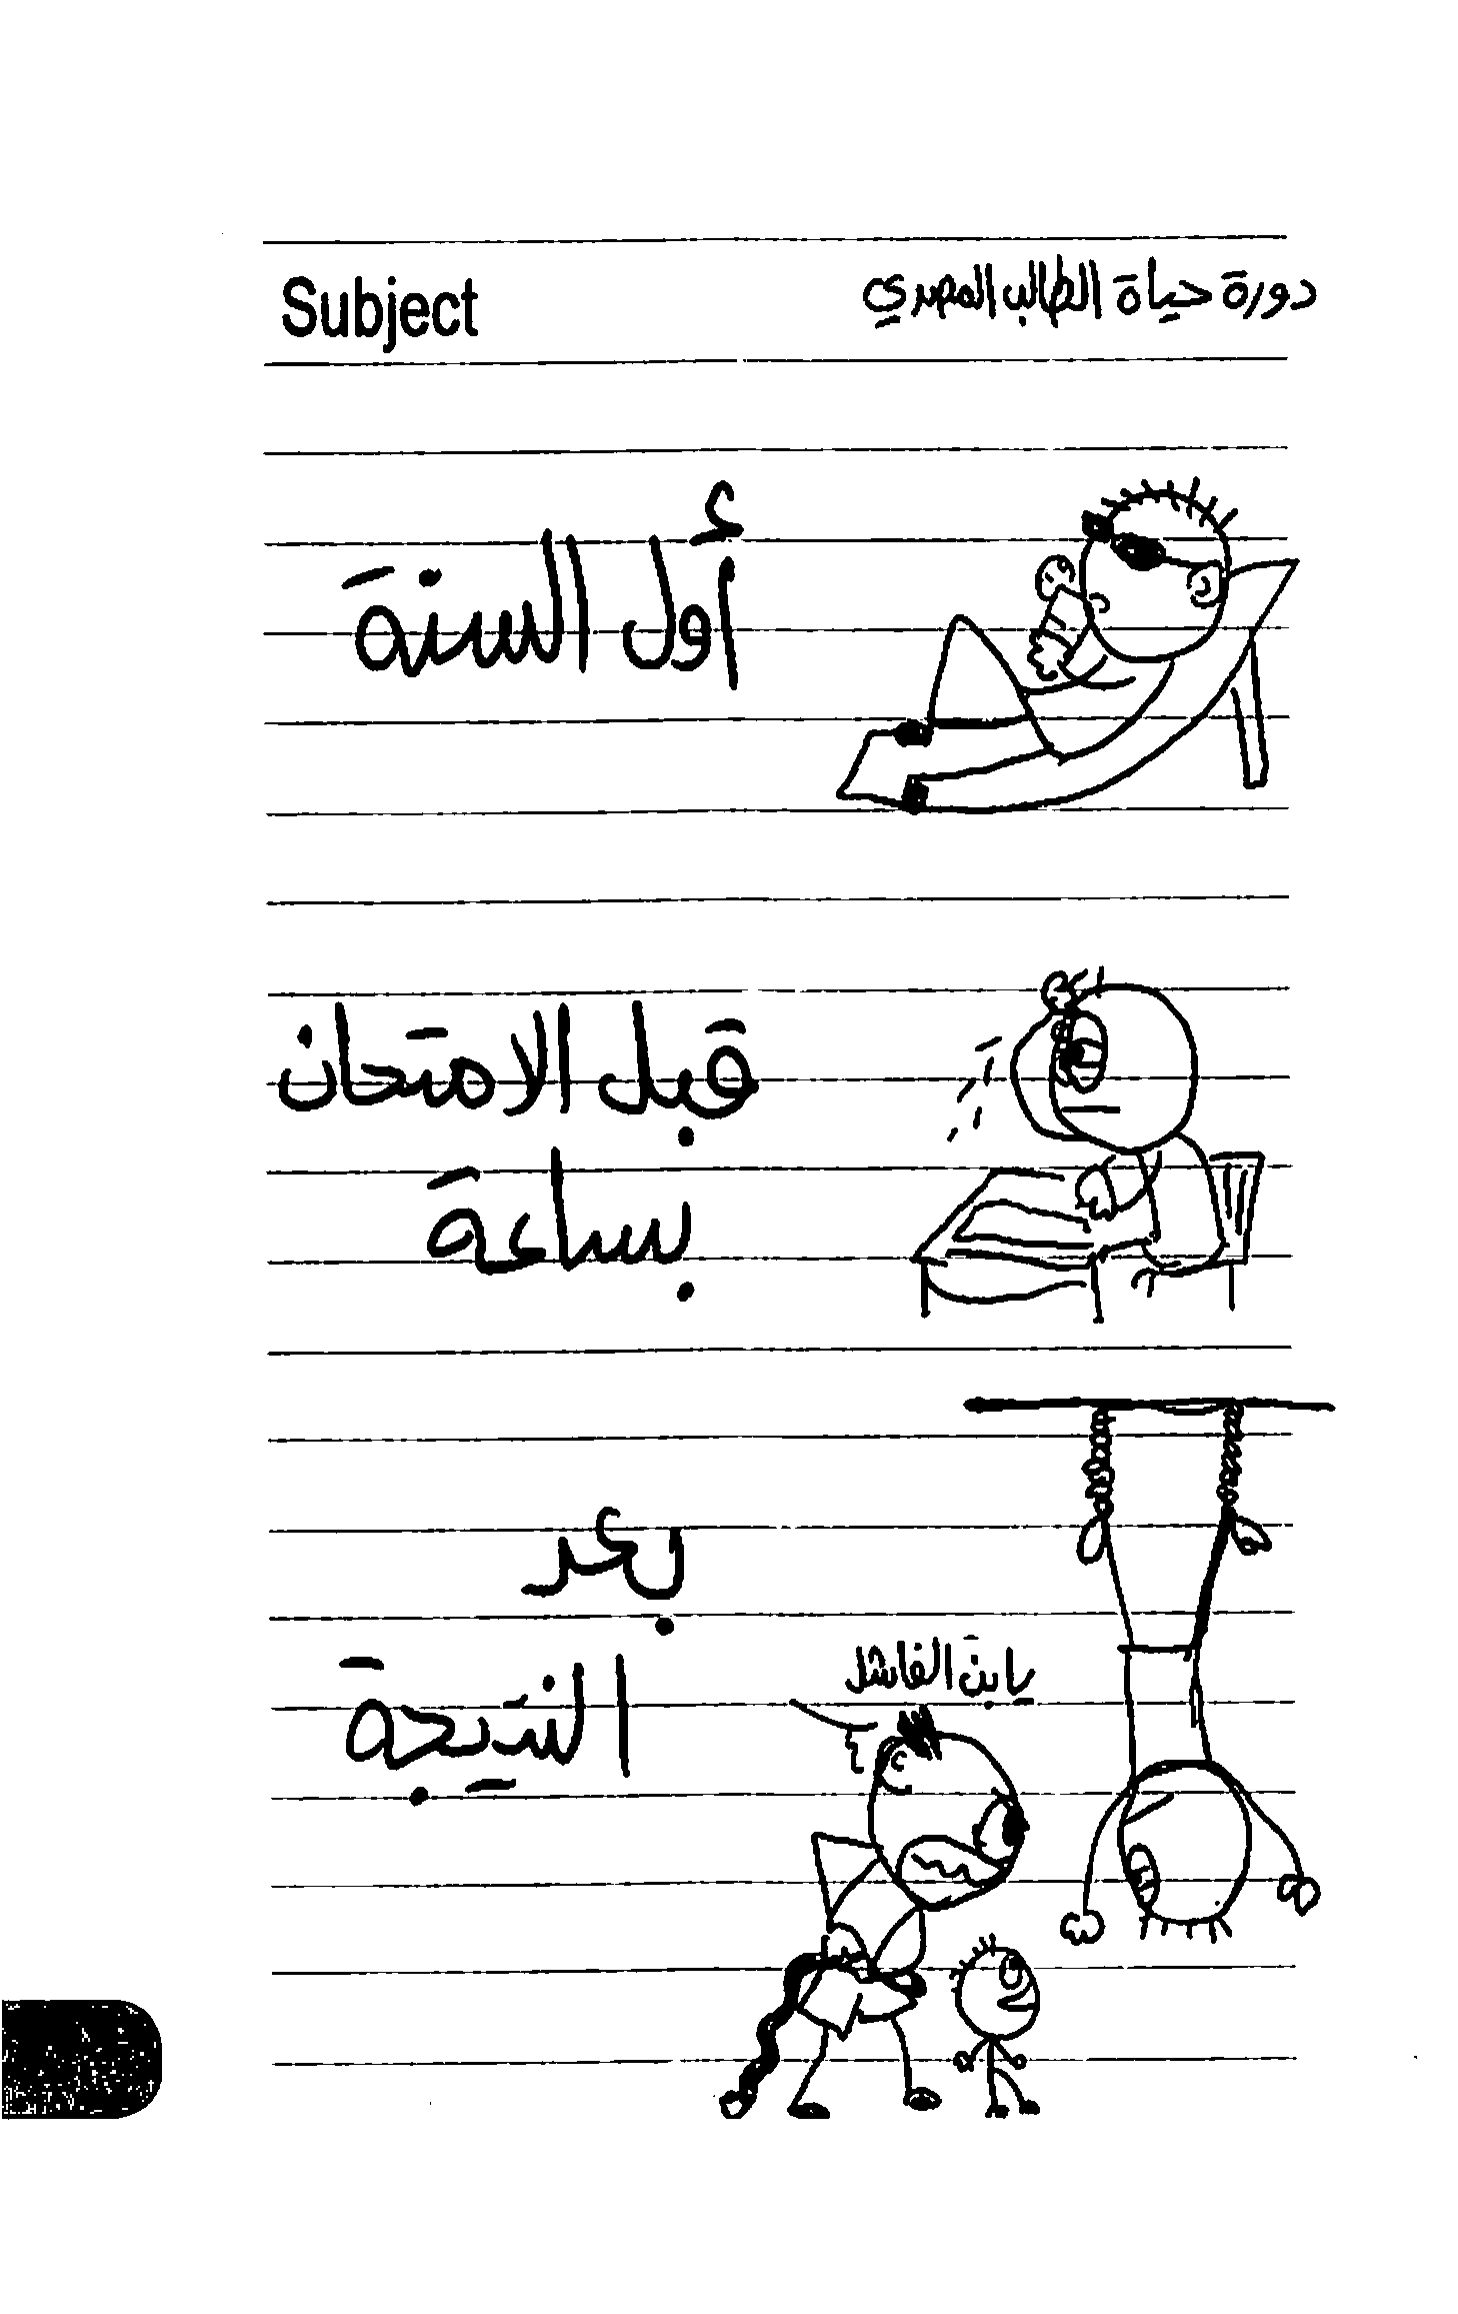 Subject
دورة حياة الطالب المصري
أول السنة
قبل الامتحان
بساعة
بعد
النتيجة
يا ابن الفاشل